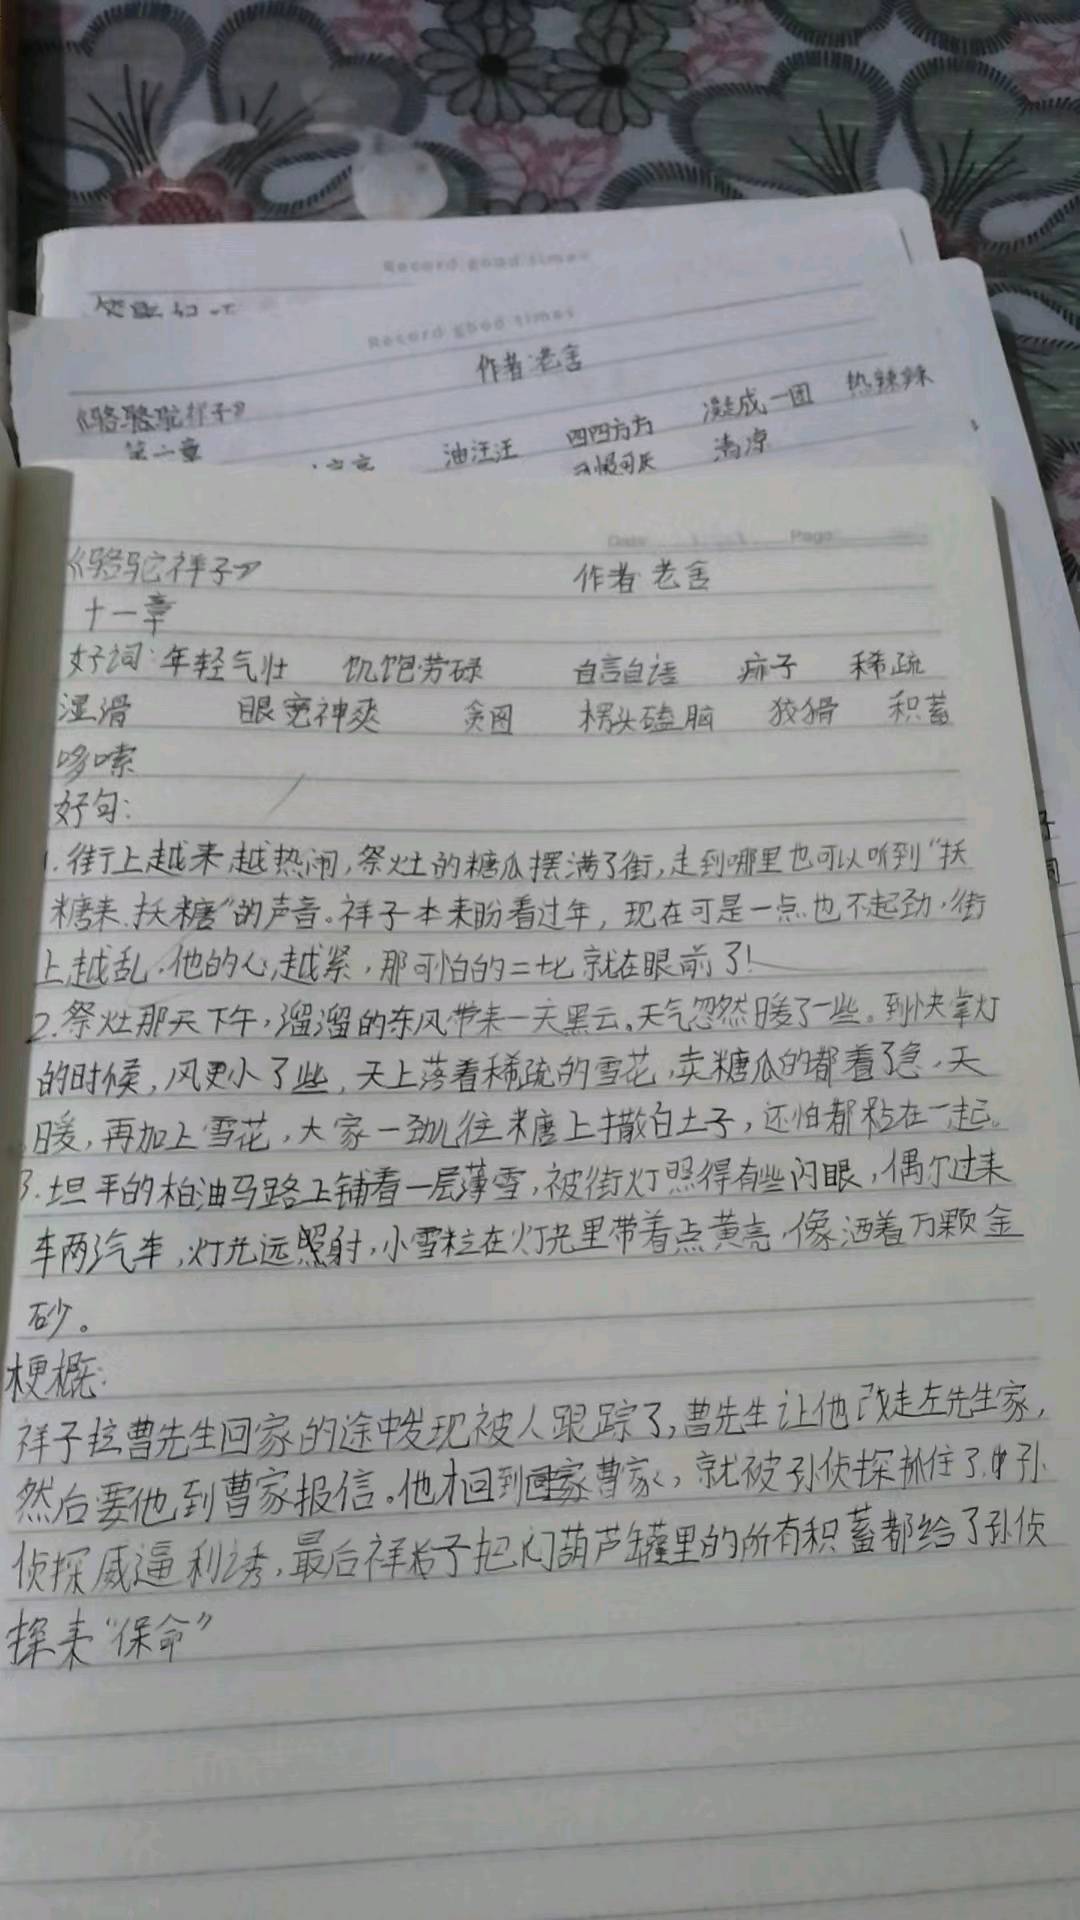 Record good times
Record good times
作者:老舍
《骆驼祥子》
第二章
油汪汪 四四方方 凝成一团 热辣辣
清凉
Date: Page:
《骆驼祥子》 作者 老舍
十一章
好词:年轻气壮 饥饱劳碌 自言自语 痱子 稀疏
湿滑 眼宽神爽 贪图 楞头磕脑 狡猾 积蓄
哆嗦
好句:
1.街上越来越热闹,祭灶的糖瓜摆满了街,走到哪里也可以听到“扶
糖来,扶糖”的声音。祥子本来盼着过年,现在可是一点也不起劲,街
上越乱,他的心越紧,那可怕的二十七就在眼前了!
2.祭灶那天下午,溜溜的东风带来一天黑云。天气忽然暖了一些。到快掌灯
的时候,风更小了些,天上落着稀疏的雪花,卖糖瓜的都着了急,天
暖,再加上雪花,大家一劲儿往糖上撒白土子,还怕都粘在一起。
3.坦平的柏油马路上铺着一层薄雪,被街灯照得有些闪眼,偶尔过来
车两汽车,灯光远照射,小雪粒在灯光里带着点黄亮,像洒着万颗金
砂。
梗概:
祥子拉曹先生回家的途中发现被人跟踪了,曹先生让他改走左先生家,
然后要他到曹家报信。他才回到曹家,就被孙侦探抓住了,孙
侦探威逼利诱,最后祥子把闷葫芦罐里的所有积蓄都给了孙侦
探来“保命”